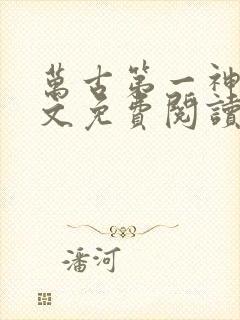 萬古第一神
文免費閱讀
潘河